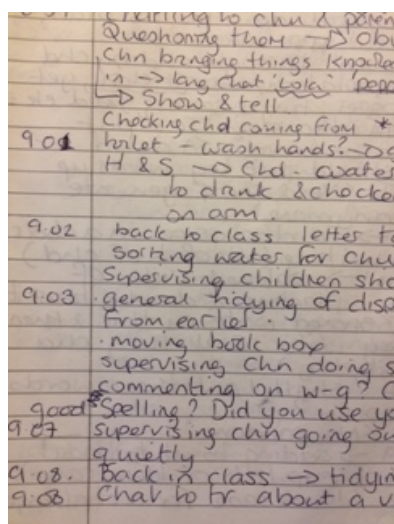 Chatting to chn & paren
Questioning them → Obs
Chn bringing things knowle
in → long chat 'Lola'
→ Show & tell
Checking chd coming from *
9.01 toilet - wash hands? →
H & S → Chd. water
to drink & chocke
on arm.
9.02 back to class letter to
Sorting water for chn
Supervising children sho
9.03 . general tidying of disp
From earlier.
. moving book box
supervising Chn doing s
commenting on w-g?
good* Spelling? Did you use yo
9.07 supervising chn going ou
quietly
9.08. Back in class → tidyin
9.08 Chat to tr about a v